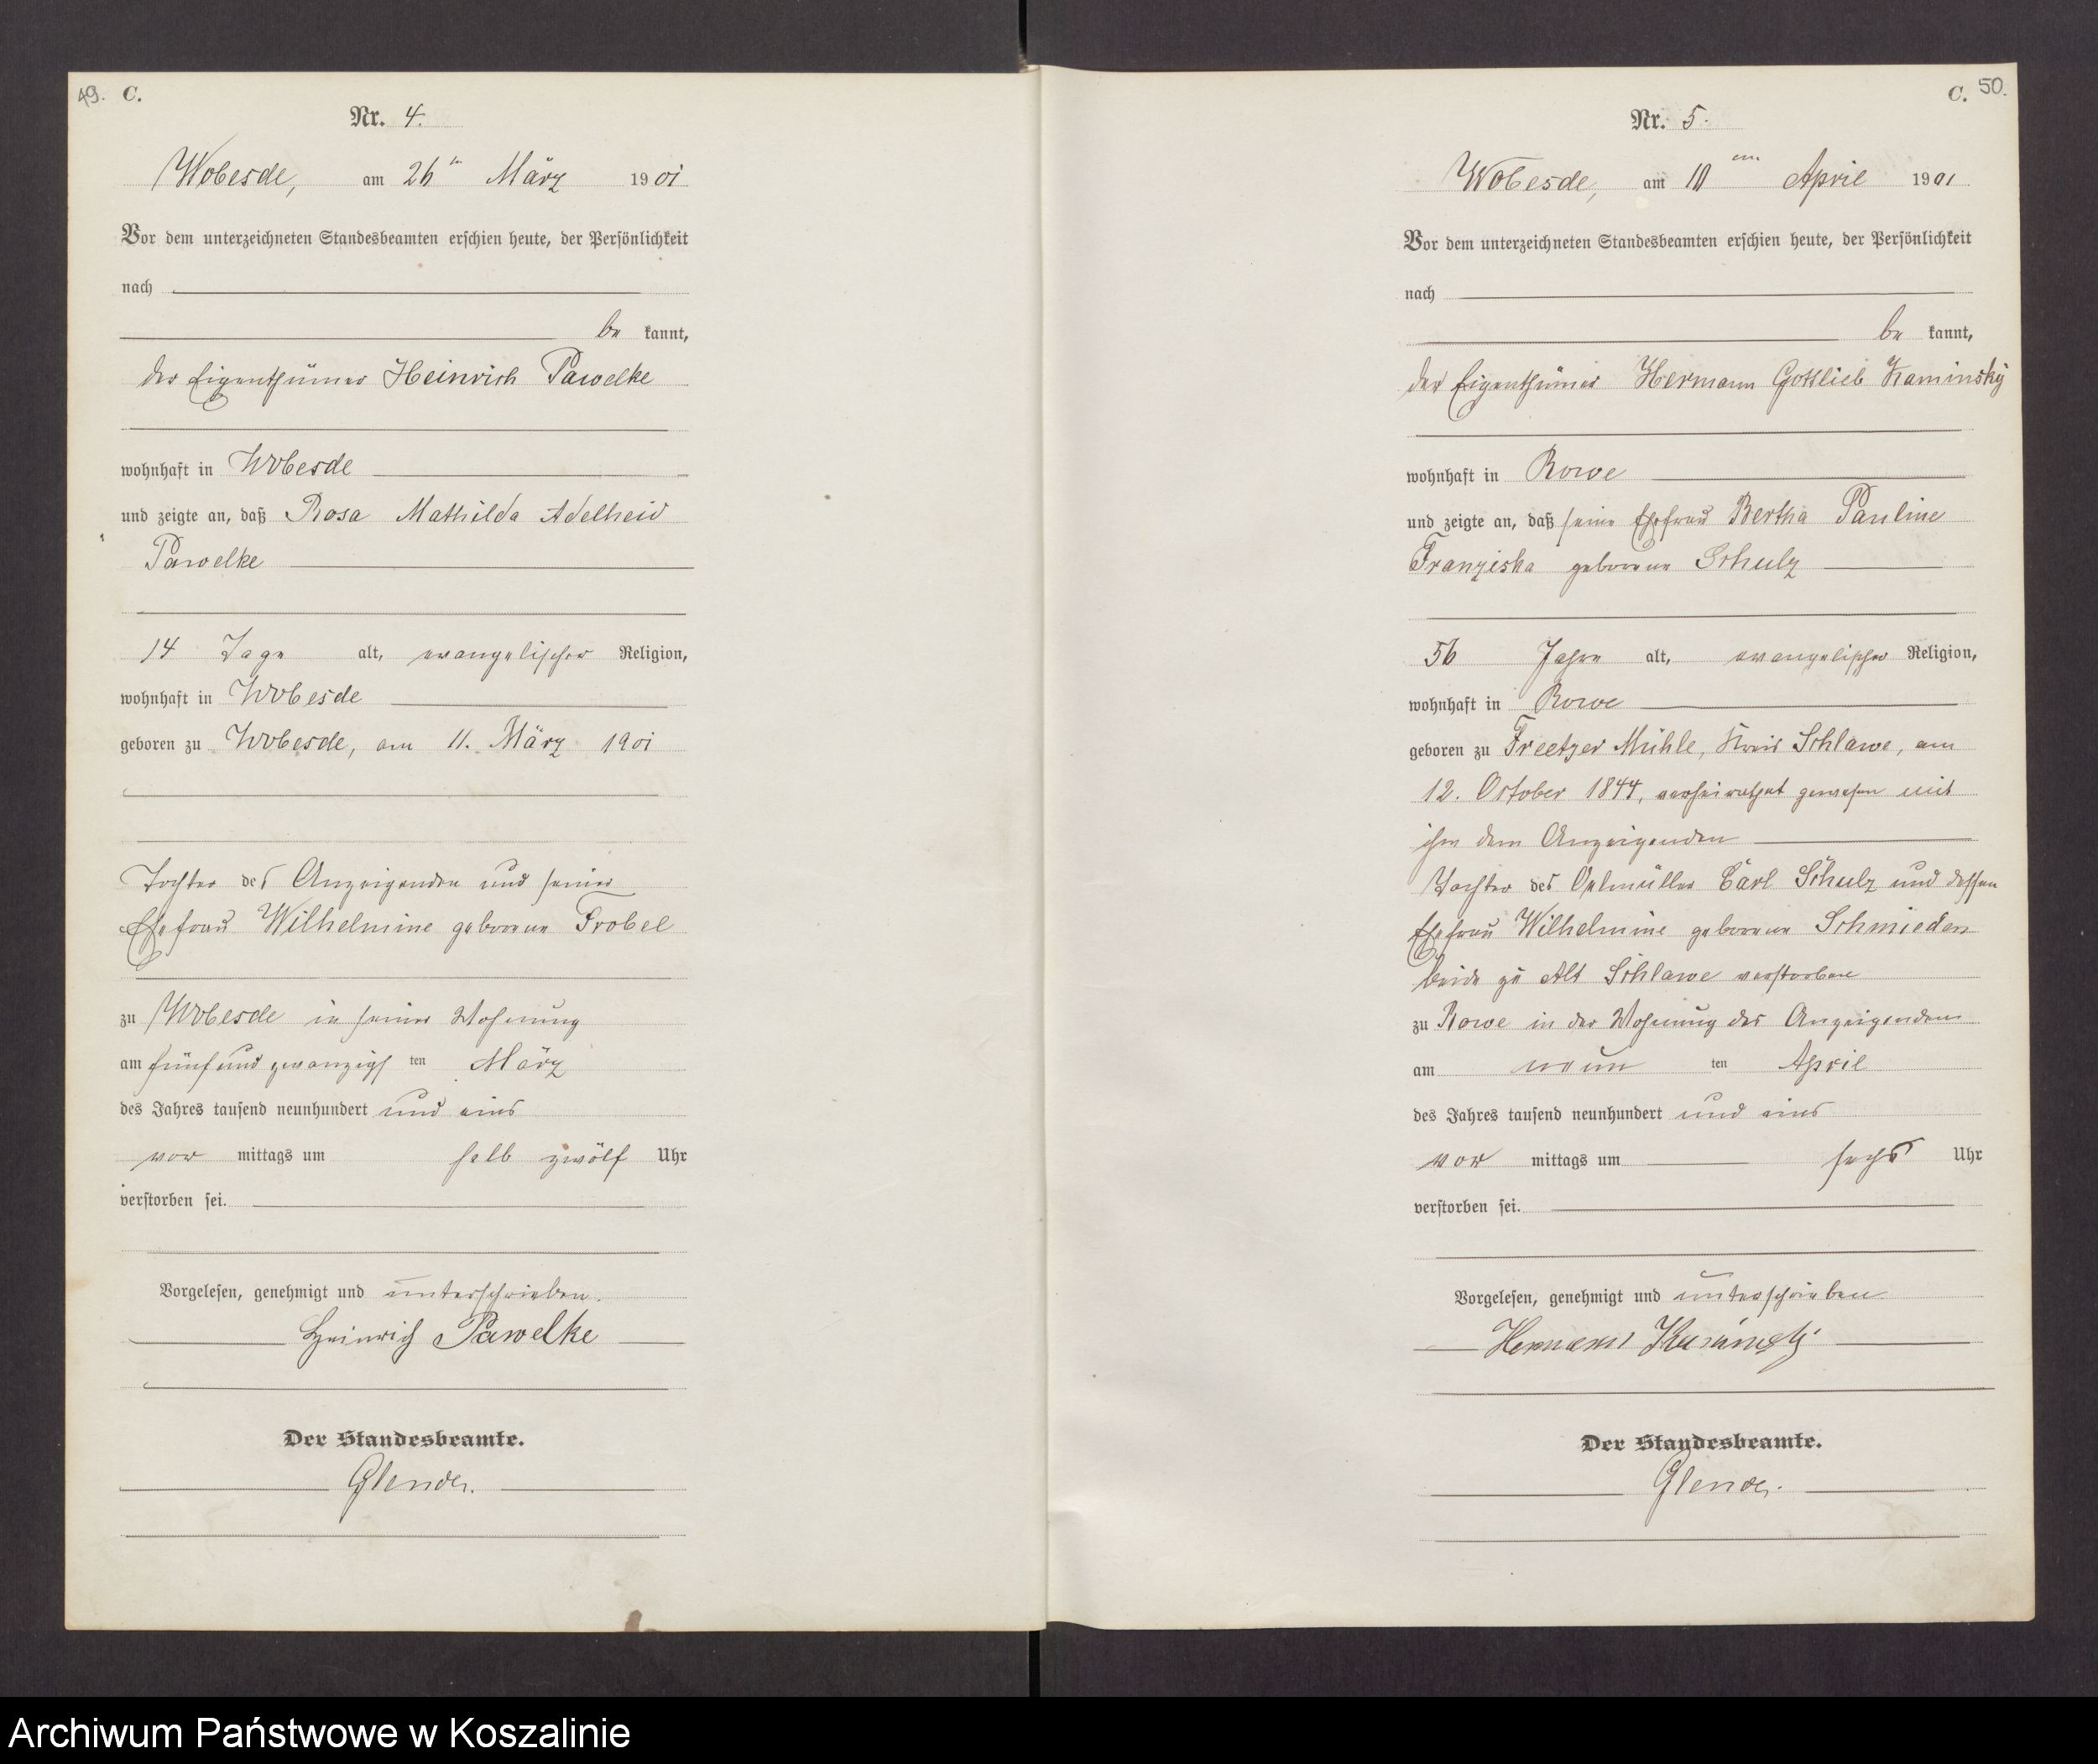 49. C.
Nr. 4.
Wobesde, am 26ten März 1901
Vor dem unterzeichneten Standesbeamten erschien heute, der Persönlichkeit
nach
be kannt,
der Eigenthümer Heinrich Pawelke
wohnhaft in Wobesde
und zeigte an, daß Rosa Mathilda Adelheid
Pawelke
14 Tage alt, evangelischer Religion,
wohnhaft in Wobesde
geboren zu Wobesde, am 11. März 1901
Tochter des Anzeigenden und seiner
Ehefrau Wilhelmine geborene Frobel
zu Wobesde in seiner Wohnung
am fünfundzwanzigs ten März
des Jahres tausend neunhundert und eins
vor mittags um halb zwölf Uhr
verstorben sei.
Vorgelesen, genehmigt und unterschrieben.
Heinrich Pawelke
Der Standesbeamte.
C. 50.
Nr. 5.
Wobesde, am 10ten April 1901
Vor dem unterzeichneten Standesbeamten erschien heute, der Persönlichkeit
nach
be kannt,
der Eigenthümer Hermann Gottlieb Kaminsky
wohnhaft in Rowe
und zeigte an, daß seine Ehefrau Bertha Pauline
Franziska geborene Schulz
56 Jahre alt, evangelischer Religion,
wohnhaft in Rowe
geboren zu Freetzer Mühle, Kreis Schlawe, am
12. October 1844, verheirathet gewesen mit
ihm dem Anzeigenden
Tochter des Oelmüller Carl Schulz und dessen
Ehefrau Wilhelmine geborene Schmieden
beide zu Alt Schlawe verstorben
zu Rowe in der Wohnung des Anzeigenden
am neun ten April
des Jahres tausend neunhundert und eins
vor mittags um sechs Uhr
verstorben sei.
Vorgelesen, genehmigt und unterschrieben
Hermann Kaminsky
Der Standesbeamte.
Archiwum Państwowe w Koszalinie